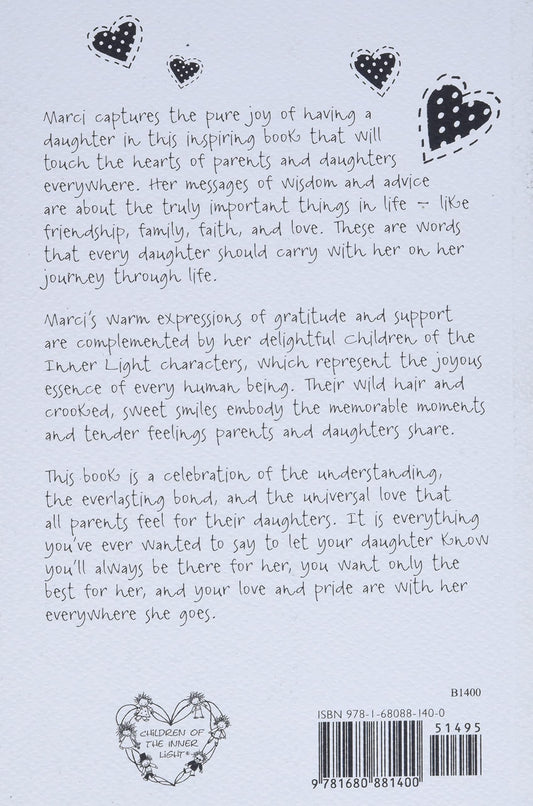 Marci captures the pure joy of having a
daughter in this inspiring book that will
touch the hearts of parents and daughters
everywhere. Her messages of wisdom and advice
are about the truly important things in life ~ like
friendship, family, faith, and love. These are words
that every daughter should carry with her on her
journey through life.
Marci's warm expressions of gratitude and support
are complemented by her delightful Children of the
Inner Light characters, which represent the joyous
essence of every human being. Their wild hair and
crooked, sweet smiles embody the memorable moments
and tender feelings parents and daughters share.
This book is a celebration of the understanding,
the everlasting bond, and the universal love that
all parents feel for their daughters. It is everything
you've ever wanted to say to let your daughter know
you'll always be there for her, you want only the
best for her, and your love and pride are with her
everywhere she goes.
CHILDREN OF
THE INNER
LIGHT®
B1400
ISBN 978-1-68088-140-0
51495
9 781680 881400